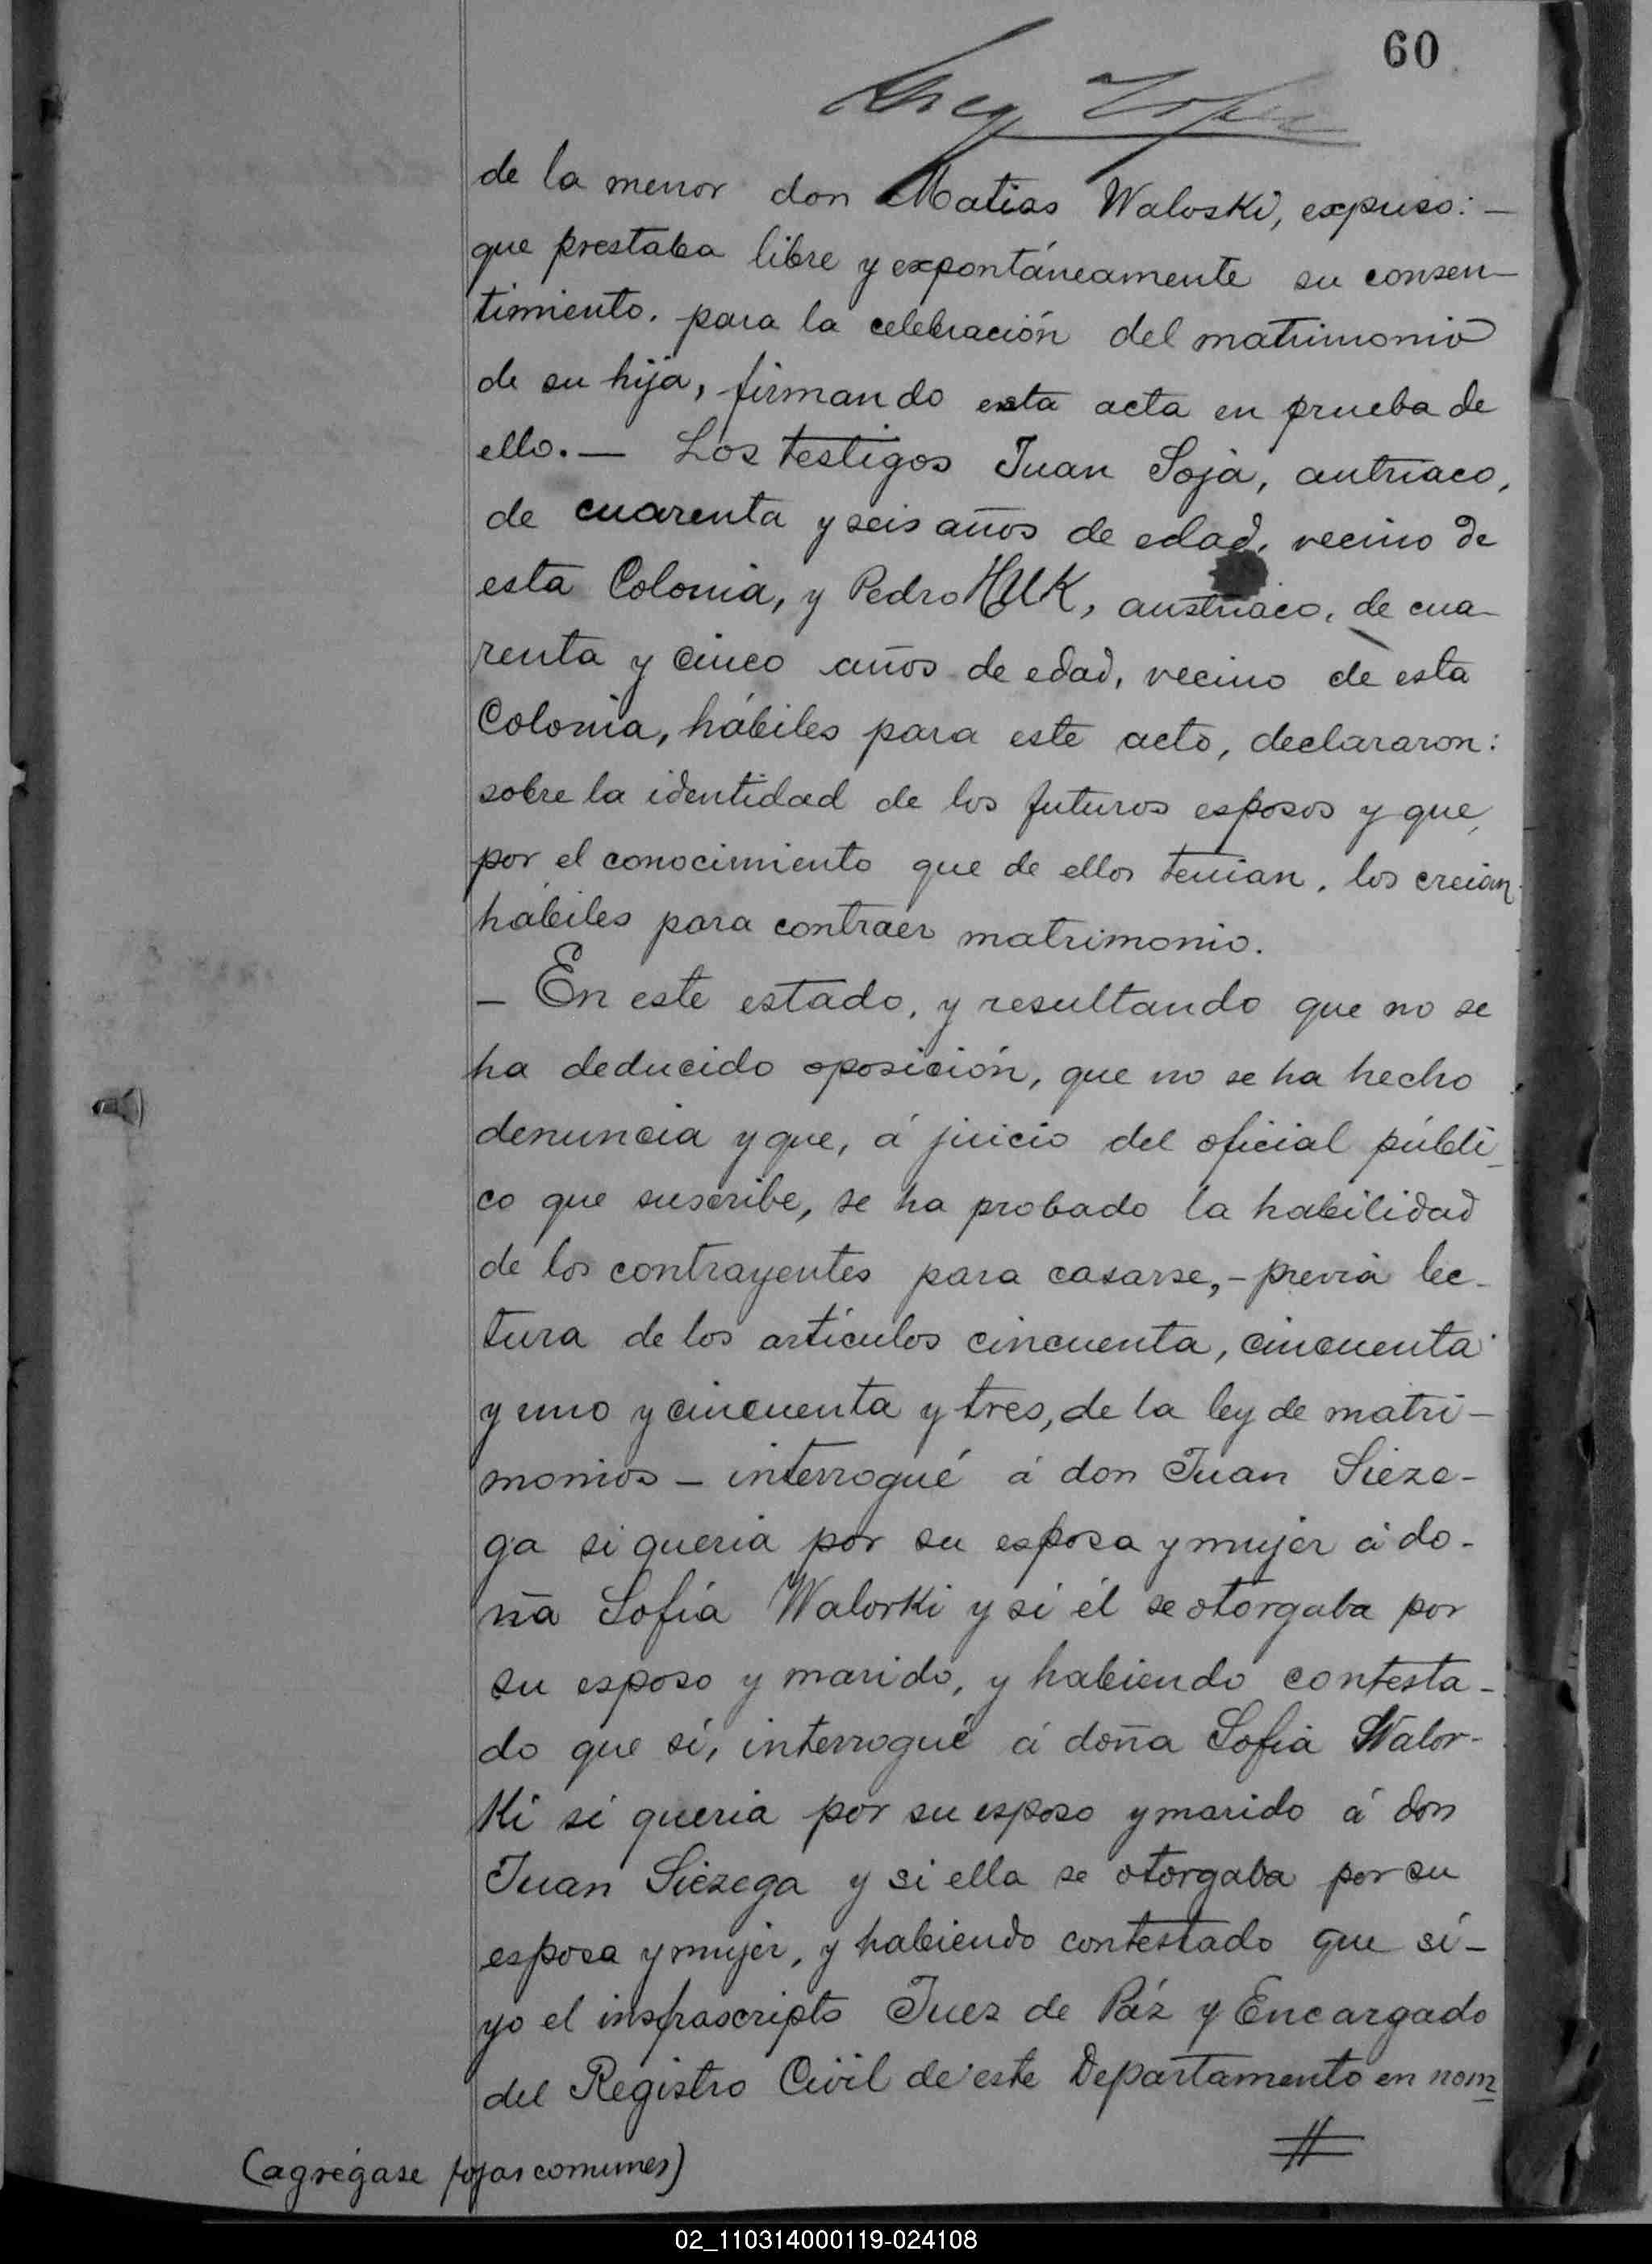 60
de la menor don Matias Waloski, expuso: —
que prestaba libre y expontáneamente su consen-
timiento. para la celebración del matrimonio
de su hija, firmando esta acta en prueba de
ello. — Los testigos Juan Soja, autriaco,
de cuarenta y seis años de edad, vecino de
esta Colonia, y Pedro HUK, austriaco, de cua-
renta y cinco años de edad, vecino de esta
Colonia, hábiles para este acto, declararon:
sobre la identidad de los futuros esposos y que,
por el conocimiento que de ellos tenian, los creian
hábiles para contraer matrimonio.
— En este estado, y resultando que no se
ha deducido oposición, que no se ha hecho
denuncia y que, á juicio del oficial públi-
co que suscribe, se ha probado la habilidad
de los contrayentes para casarse, - previa lec-
tura de los artículos cincuenta, cincuenta
y uno y cincuenta y tres, de la ley de matri-
monios — interrogué á don Juan Sieze-
ga si queria por su esposa y mujer á do-
ña Sofía Walorki y si él se otorgaba por
su esposo y marido, y habiendo contesta-
do que sí, interrogué á doña Sofia Walor-
ki si queria por su esposo y marido á don
Juan Siezega y si ella se otorgaba por su
esposa y mujer, y habiendo contestado que sí -
yo el insfrascripto Juez de Páz y Encargado
del Registro Civil de este Departamento en nom
(agregase fojas comunes)
02_110314000119-024108